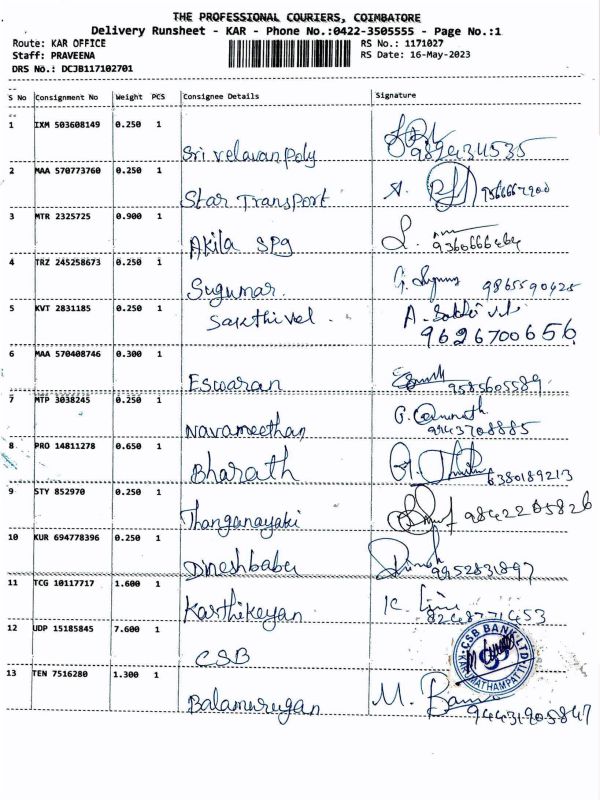 THE PROFESSIONAL COURIERS, COIMBATORE
Delivery Runsheet - KAR - Phone No.:0422-3505555 - Page No.:1
Route: KAR OFFICE RS No.: 1171027
Staff: PRAVEENA RS Date: 16-May-2023
DRS No.: DCJB117102701
S No Consignment No Weight PCS Consignee Details Signature
1 IXM 503608149 0.250 1
Sri velavan poly 9894434535
2 MAA 570773760 0.250 1
Star Transport
3 MTR 2325725 0.900 1
Akila SPG 9360666464
4 TRZ 245258673 0.250 1
Sugumar. 9865590425
5 KVT 2831185 0.250 1 Sakthivel. A. Sakthi vel
9626700656
6 MAA 570408746 0.300 1
Eswaran 9585605589
7 MTP 3038245 0.250 1
Navaneethan 9443708885
8 PRO 14811278 0.650 1
Bharath 6380189213
9 STY 852970 0.250 1
Thanganayaki 9842205826
10 KUR 694778396 0.250 1
Dineshbabu 9952831897
11 TCG 10117717 1.600 1
Karthikeyan 8248771453
12 UDP 15185845 7.600 1
CSB
CSB BANK LTD
KARUMATHAMPATTI
13 TEN 7516280 1.300 1
Balamurugan 94431905847